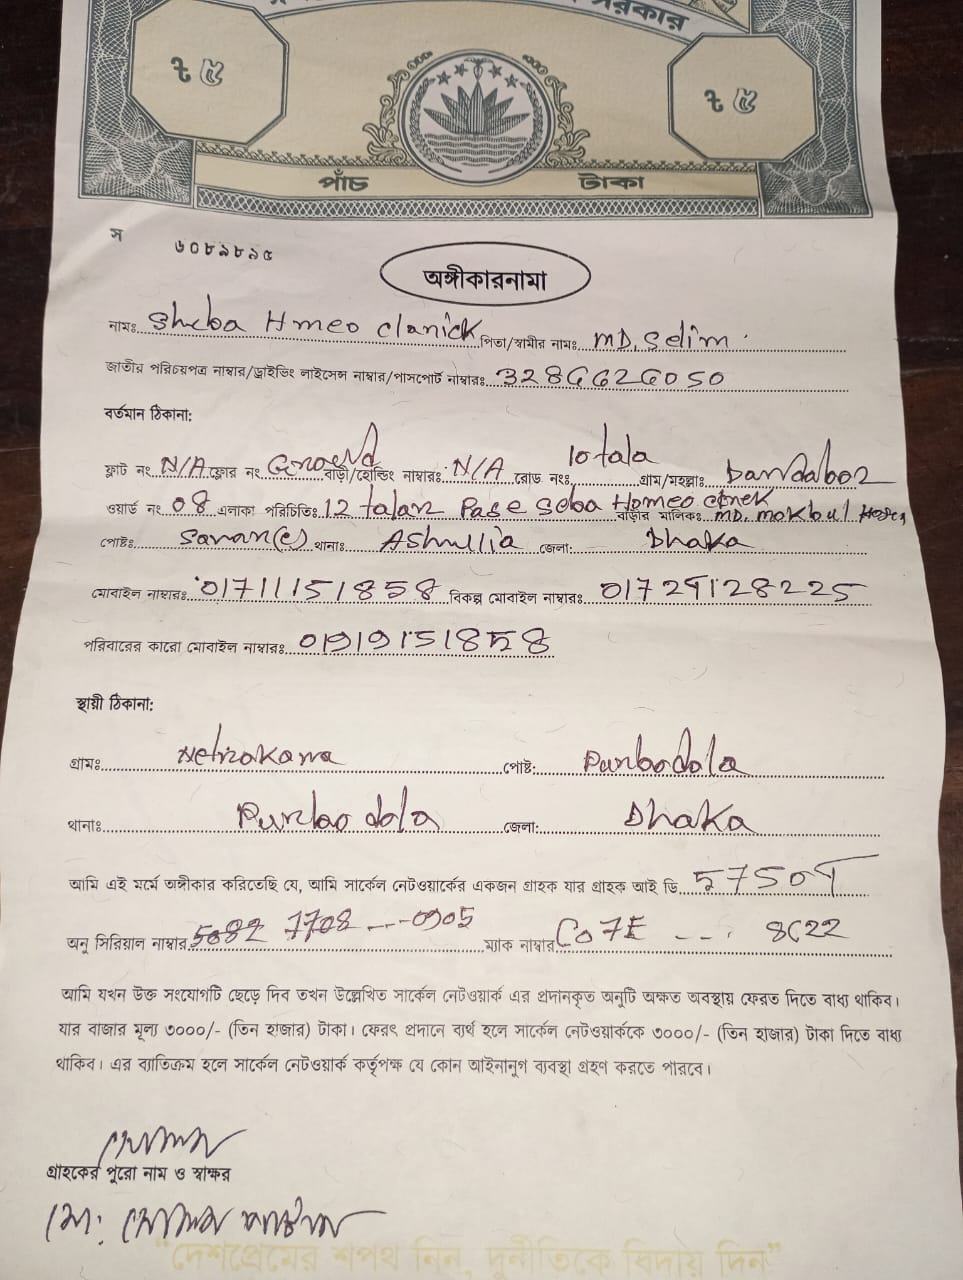 সরকার
৳ ৫ ৳ ৫
পাঁচ টাকা
স ৬০৮৯৮৯৫
অঙ্গীকারনামা
নামঃ Sheba Hmeo clanick পিতা/স্বামীর নামঃ MD. Selim
জাতীয় পরিচয়পত্র নাম্বার/ড্রাইভিং লাইসেন্স নাম্বার/পাসপোর্ট নাম্বারঃ 3286626050
বর্তমান ঠিকানা:
ফ্লাট নং N/A ফ্লোর নং Ground বাড়ী/হোল্ডিং নাম্বারঃ N/A রোড নংঃ 10 tala গ্রাম/মহল্লাঃ
ওয়ার্ড নং 08 এলাকা পরিচিতিঃ 12 talar Pase Seba Homeo বাড়ীর মালিকঃ MD. Mokbul
পোষ্টঃ থানাঃ Ashullia জেলা: Dhaka
মোবাইল নাম্বারঃ 01711151858 বিকল্প মোবাইল নাম্বারঃ
পরিবারের কারো মোবাইল নাম্বারঃ 01919151858
স্থায়ী ঠিকানা:
গ্রামঃ Netrokona পোষ্ট: Purbodola
থানাঃ Purbo dola জেলা: Dhaka
আমি এই মর্মে অঙ্গীকার করিতেছি যে, আমি সার্কেল নেটওয়ার্কের একজন গ্রাহক যার গ্রাহক আই ডি
অনু সিরিয়াল নাম্বার ম্যাক নাম্বার C07E --- 8C22
আমি যখন উক্ত সংযোগটি ছেড়ে দিব তখন উল্লেখিত সার্কেল নেটওয়ার্ক এর প্রদানকৃত অনুটি অক্ষত অবস্থায় ফেরত দিতে বাধ্য থাকিব।
যার বাজার মূল্য ৩০০০/- (তিন হাজার) টাকা। ফেরৎ প্রদানে ব্যর্থ হলে সার্কেল নেটওয়ার্ককে ৩০০০/- (তিন হাজার) টাকা দিতে বাধ্য
থাকিব। এর ব্যতিক্রম হলে সার্কেল নেটওয়ার্ক কর্তৃপক্ষ যে কোন আইনানুগ ব্যবস্থা গ্রহণ করতে পারবে।
গ্রাহকের পুরো নাম ও স্বাক্ষর
মো:
"দেশপ্রেমের শপথ নিন, দুর্নীতিকে বিদায় দিন"